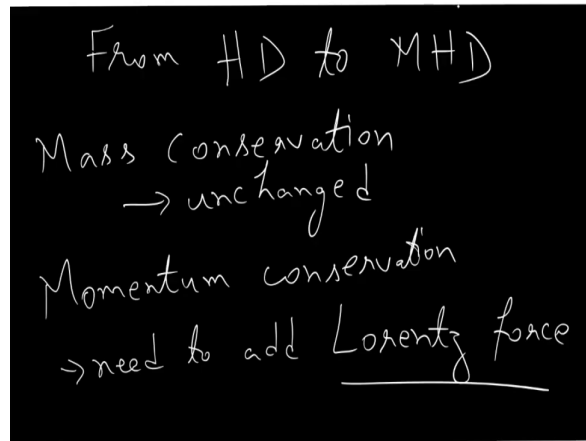 From HD to MHD
Mass Conservation
→ unchanged
Momentum conservation
→ need to add Lorentz force